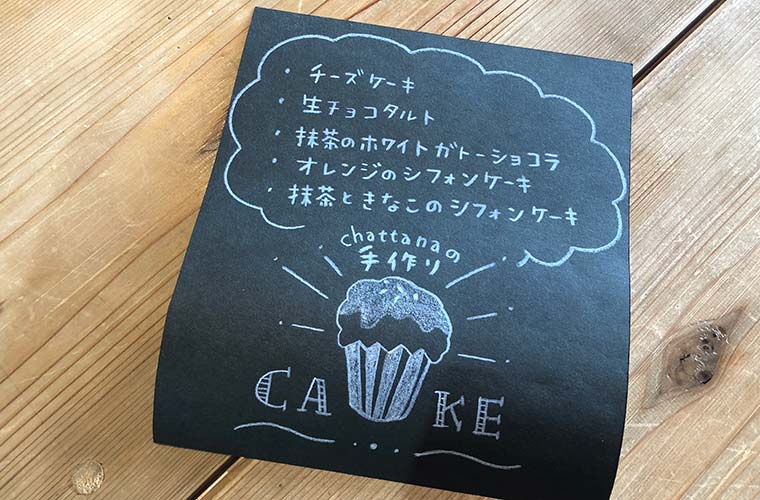 ・チーズケーキ
・生チョコタルト
・抹茶のホワイトガトーショコラ
・オレンジのシフォンケーキ
・抹茶ときなこのシフォンケーキ
chattanaの
手作り
CAKE